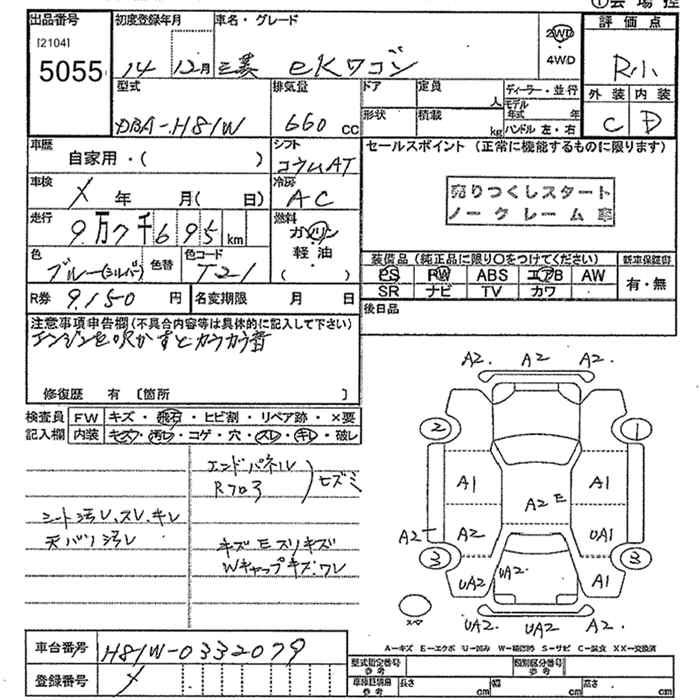 ①会場控
出品番号
[2104]
5055
初度登録年月
14 12月
車名・グレード
三菱 eKワゴン
2WD
・
4WD
評価点
R小
外装 内装
C D
型式
DBA-H81W
排気量
660 cc
ドア
定員
人
形状
積載
kg
ディーラー・並行
モデル
年式 年
ハンドル 左・右
車歴
自家用・( )
シフト
コラムAT
車検
× 年 月( 日)
冷房
AC
走行
9万7千695 km
燃料
ガソリン
軽油
( )
色
ブルー(シルバー)
色替
色コード
T21
R券
9,150 円
名変期限 月 日
セールスポイント (正常に機能するものに限ります)
売りつくしスタート
ノークレーム車
装備品 (純正品に限り○をつけてください)
新車保証書
PS PW ABS エアB AW
SR ナビ TV カワ
有・無
後日品
注意事項申告欄(不具合内容等は具体的に記入して下さい)
エンジンを吹かすとカラカラ音
修復歴 有 〔箇所 〕
検査員
記入欄
FW キズ・飛石・ヒビ割・リペア跡・×要
内装 キズ・汚レ・コゲ・穴・スレ・キレ・破レ
エンドパネル
Rフロア
ヒズミ
シート汚レ、スレ、キレ
天バリ汚レ
キズ E スリキズ
Wキャップキズ・ワレ
A2. A2 A2.
2 1
A1 A1
A2 E
A2 A2 UA1
3 3
UA2 UA2 A1
スペ
UA2. UA2 A2.
A-キズ E-エクボ U-凹み W-補修跡 S-サビ C-腐食 XX-交換済
車台番号
H81W-0332079
登録番号
×
型式指定番号
参考
類別区分番号
参考
車検証数値
参考
長さ cm
幅 cm
高さ cm